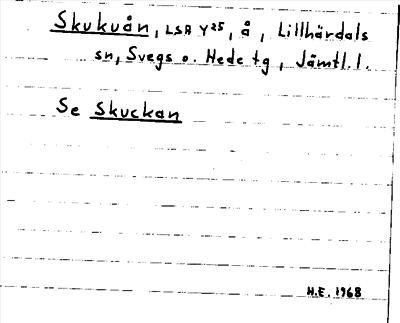 Skukuån, LSA Y25, å, Lillhärdals
sn, Svegs o. Hede tg, Jämtl. l.
Se Skuckan
H.E. 1968